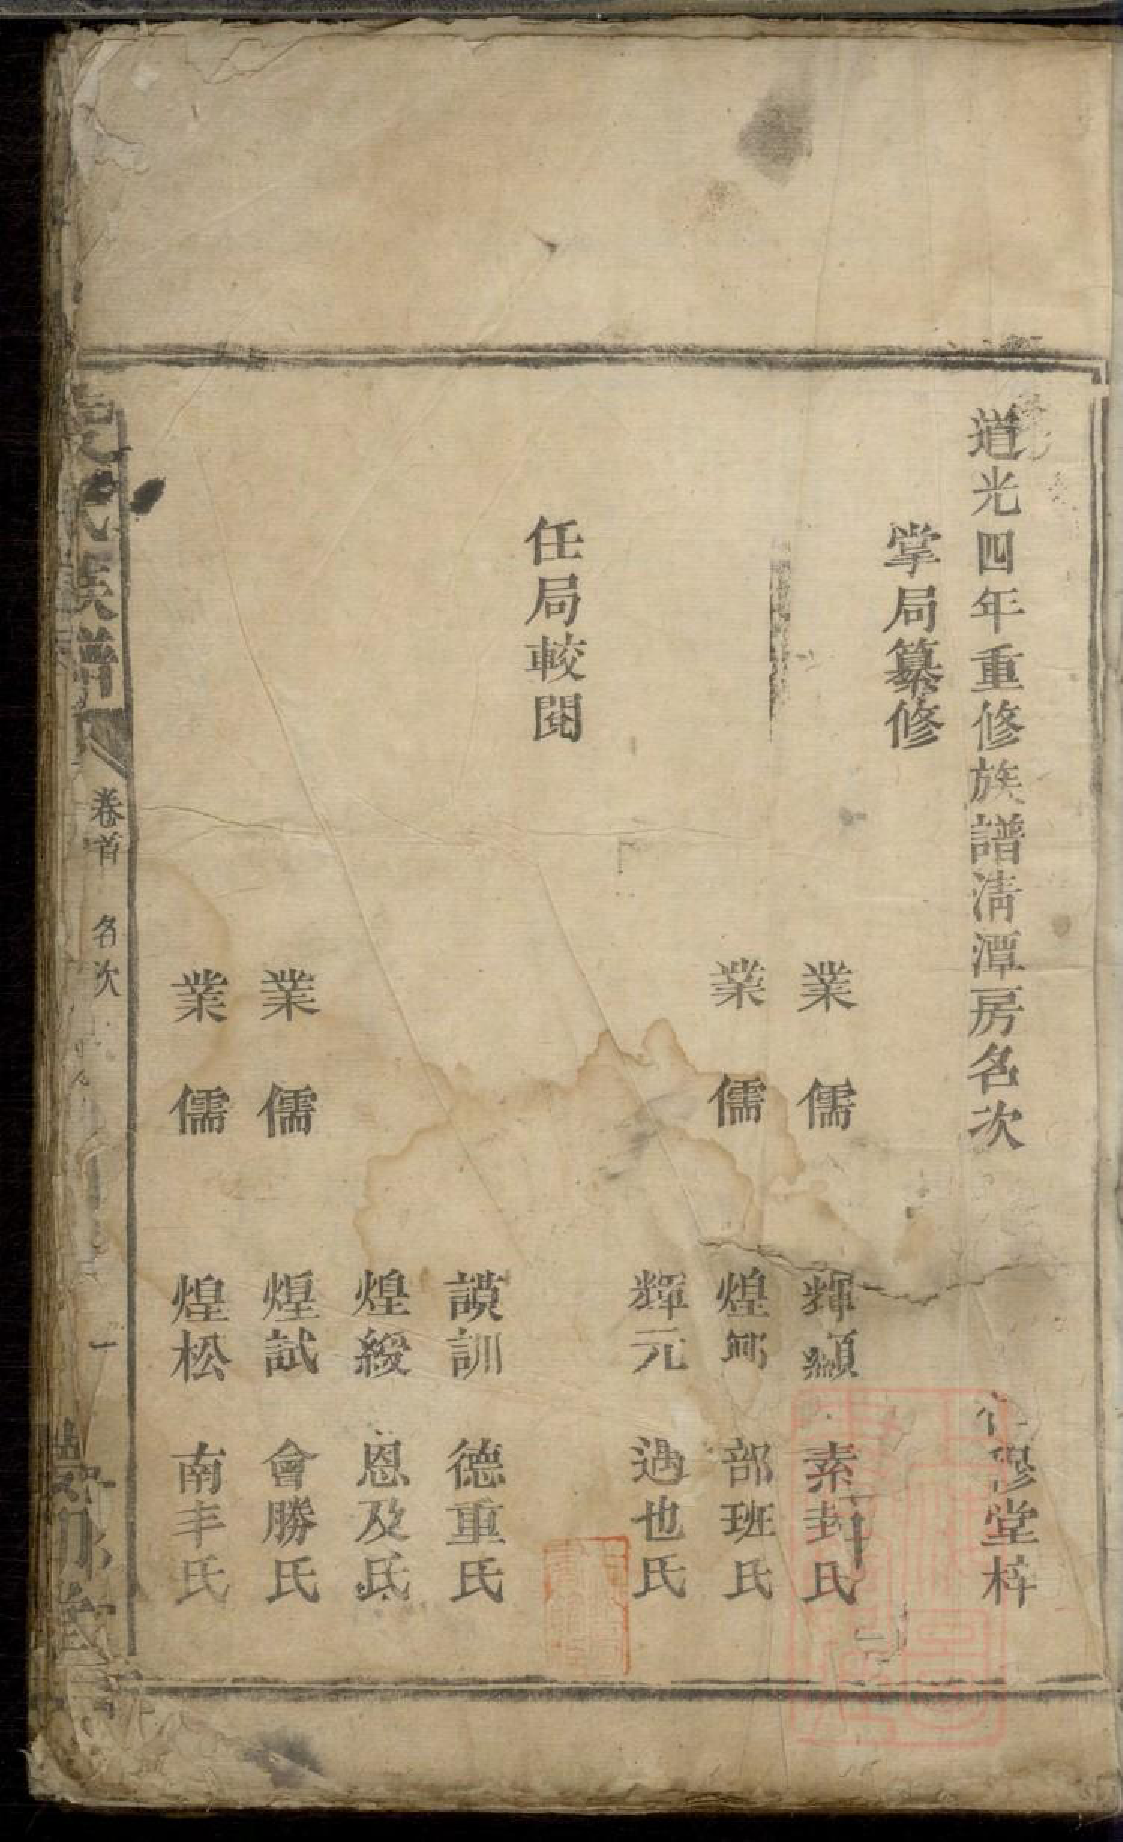 道光四年重修族譜淸潭房名次
穆堂梓
掌局纂修
業儒 輝 素封氏
業儒 煌 部班氏
輝元 過也氏
任局較閱
謨訓 德重氏
煌綬 恩及氏
業儒 煌試 會勝氏
業儒 煌松 南丰氏
氏族譜
卷首 名次
一